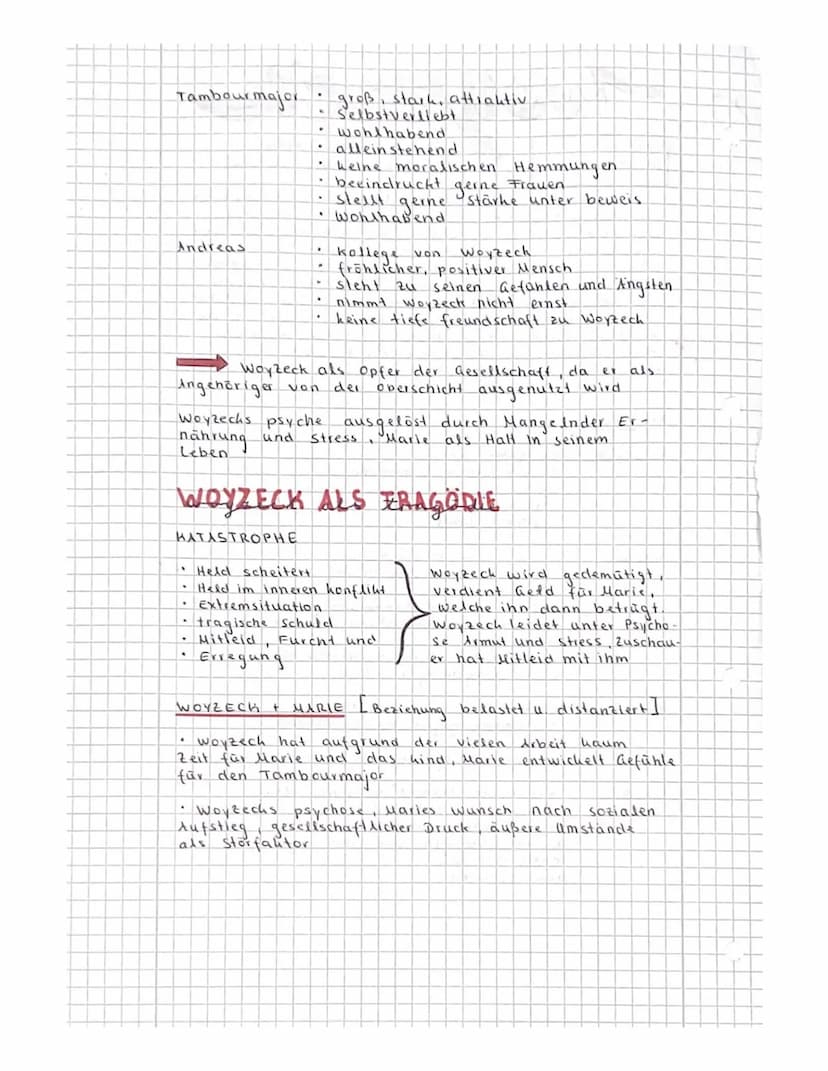 Tambourmajor • groß, stark, attraktiv
• Selbstverliebt
• wohlhabend
• alleinstehend
• keine moralischen Hemmungen
• beeindruckt gerne Frauen
• stellt gerne Stärke unter beweis
• wohlhabend
Andreas • kollege von Woyzeck
• fröhlicher, positiver Mensch
• steht zu seinen Gefühlen und Ängsten
• nimmt Woyzeck nicht ernst
• keine tiefe freundschaft zu Woyzeck
Woyzeck als Opfer der Gesellschaft, da er als
Angehöriger von der Oberschicht ausgenutzt wird
Woyzecks psyche ausgelöst durch Mangelnder Er-
nährung und Stress, Marie als Halt in seinem
Leben
WOYZECK ALS TRAGÖDIE
KATASTROPHE
• Held scheitert
• Held im inneren konflikt
• Extremsituation
• tragische schuld
• Mitleid, Furcht und
• Erregung
Woyzeck wird gedemütigt,
verdient Geld für Marie,
welche ihn dann betrügt.
Woyzeck leidet unter Psycho-
se Armut und stress, Zuschau-
er hat Mitleid mit ihm
WOYZECK + MARIE [Beziehung belastet u. distanziert]
• Woyzeck hat aufgrund der vielen Arbeit kaum
Zeit für Marie und das kind, Marie entwickelt Gefühle
für den Tambourmajor
• Woyzecks psychose, Maries wunsch nach sozialen
Aufstieg, gesellschaftlicher Druck, äußere Umstände
als Störfaktor